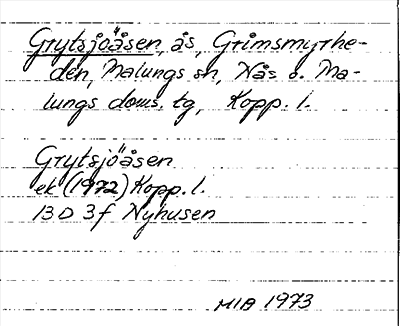 Grytsjöåsen, ås, Grimsmyrhe-
den, Malungs sn, Nås o. Ma-
lungs doms. tg, Kopp. l.
Grytsjöåsen
ek (1972) Kopp. l.
13 D 3f Nyhusen
MIB 1973